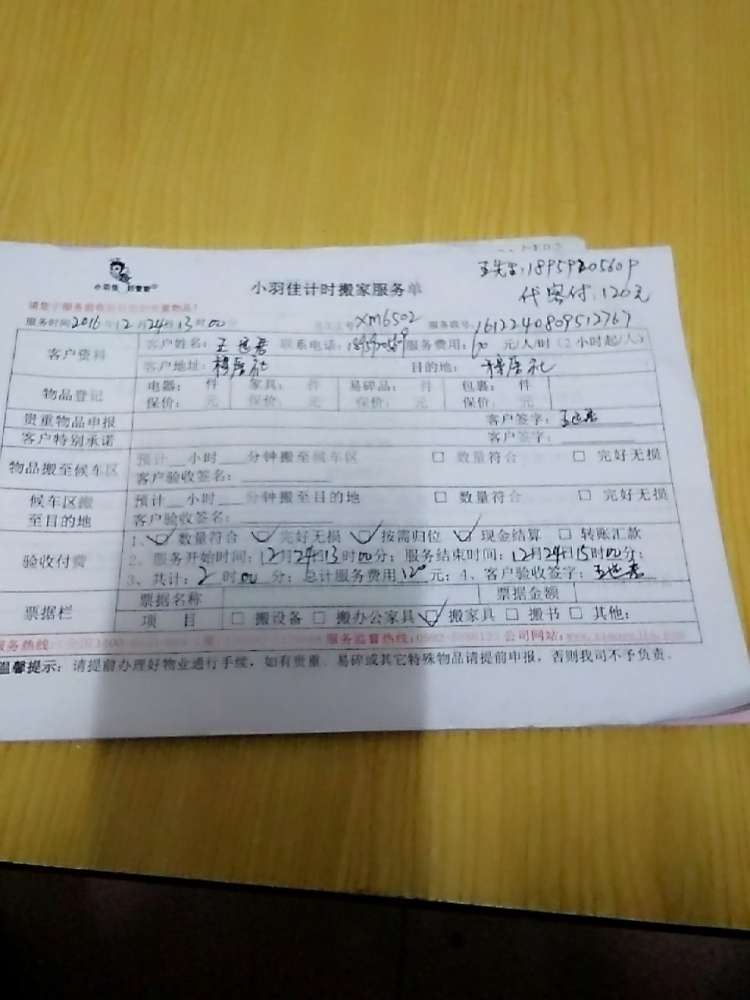 王先生:18959205609
代客付:120元
小羽佳 好管家
小羽佳计时搬家服务单
服务时间2016年12月24日13时00分 XM6502 服务编号:1612240809512767
客户资料
客户姓名:王 联系电话: 服务费用:60 元/人/时(2小时起/人)
客户地址: 目的地:
物品登记
电器: 件 家具: 件 易碎品: 件 包裹: 件
保价: 元 保价: 元 保价: 元 保价: 元
贵重物品申报 客户签字:王
客户特别承诺 客户签字:
物品搬至候车区
预计__小时___分钟搬至候车区 □ 数量符合 □ 完好无损
客户验收签名:
候车区搬至目的地
预计__小时___分钟搬至目的地 □ 数量符合 □ 完好无损
客户验收签名:
验收付费
1、☑ 数量符合 ☑ 完好无损 ☑ 按需归位 ☑ 现金结算 □ 转账汇款
2、服务开始时间:12月24日13时00分;服务结束时间:12月24日15时00分;
3、共计:2 时00 分;总计服务费用120元;4、客户验收签字:王
票据栏
票据名称 票据金额
项 目 □ 搬设备 □ 搬办公家具 ☑ 搬家具 □ 搬书 □ 其他:
服务热线: 服务监督热线: 公司网站:
温馨提示:请提前办理好物业通行手续,如有贵重、易碎或其它特殊物品请提前申报,否则我司不予负责。